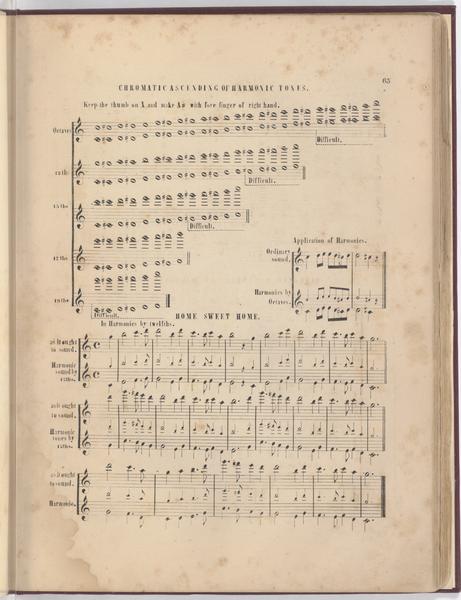 65
CHROMATIC ASCENDING OF HARMONIC TONES.
Keep the thumb on A, and make A# with fore finger of right hand.
Octaves
Difficult.
12ths
Difficult.
15ths
Difficult.
Application of Harmonics.
Ordinary
sound.
Harmonics by
Octaves.
Difficult.
HOME SWEET HOME.
In Harmonics by twelfths.
as it ought
to sound.
Harmonic
sound by
as it ought
to sound.
Harmonic
tones by
as it ought
to sound.
Harmonic.